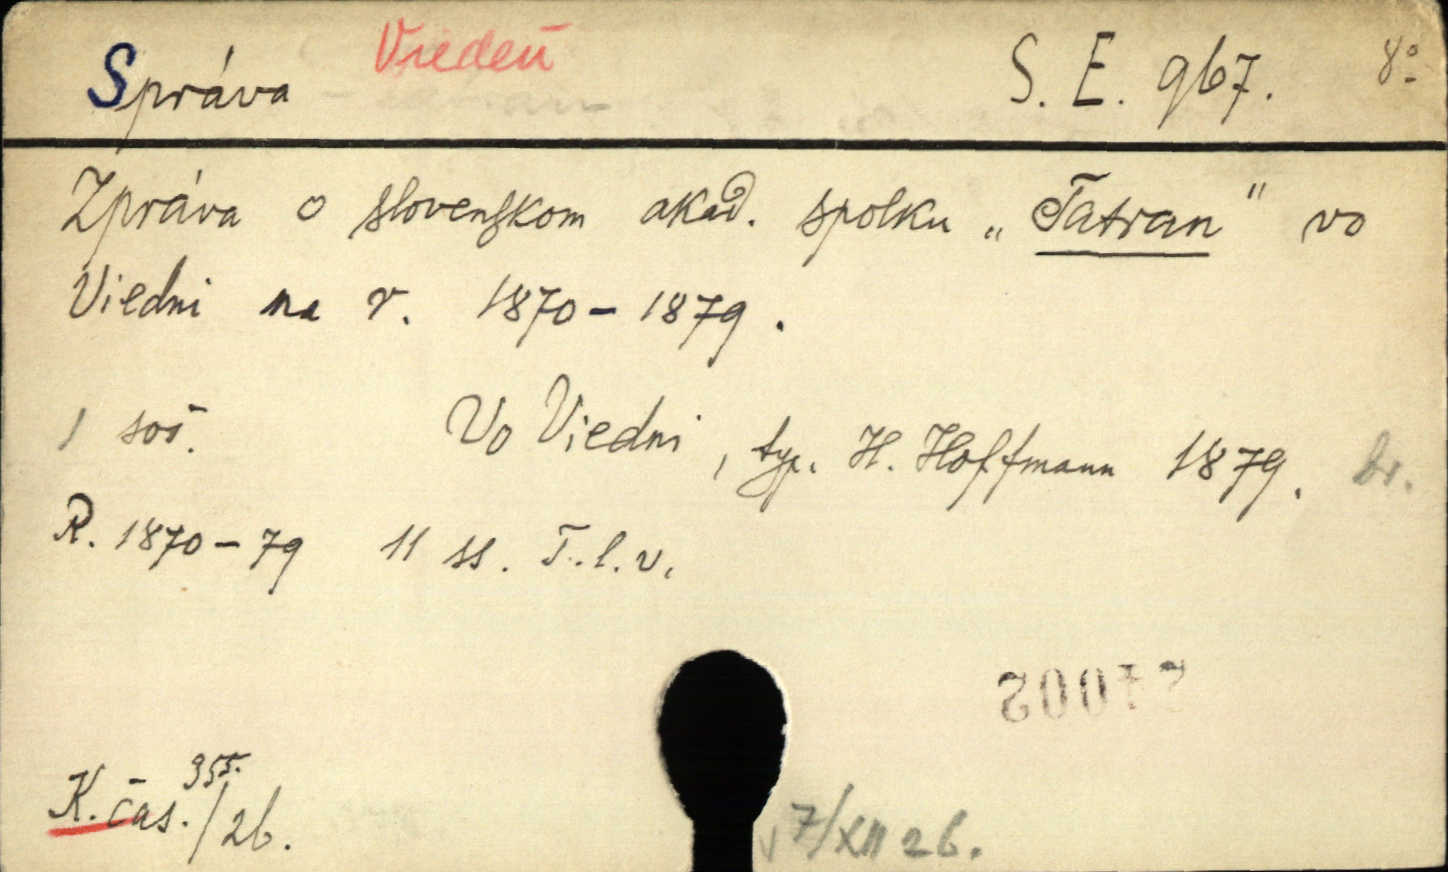 Správa Viedeň S. E. 967. 8°
Zpráva o slovenskom akad. spolku „Tatran" vo
Viedni na r. 1870-1879.
1 soš. Vo Viedni, typ. H. Hoffmann 1879. br.
R. 1870-79 11 ss. T. l. v.
K. čas. 355./26.
7/XII 26.